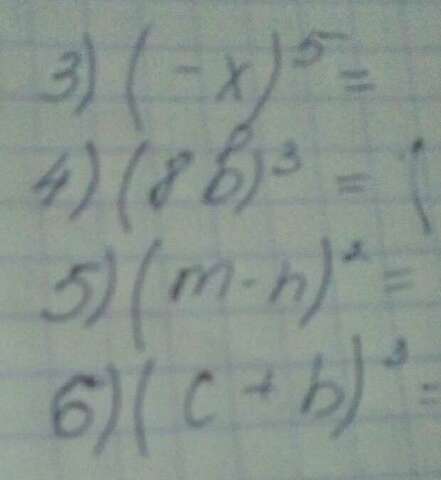 3) (-x)⁵ =
4) (8b)³ = (
5) (m-n)² =
6) (c+b)³ =